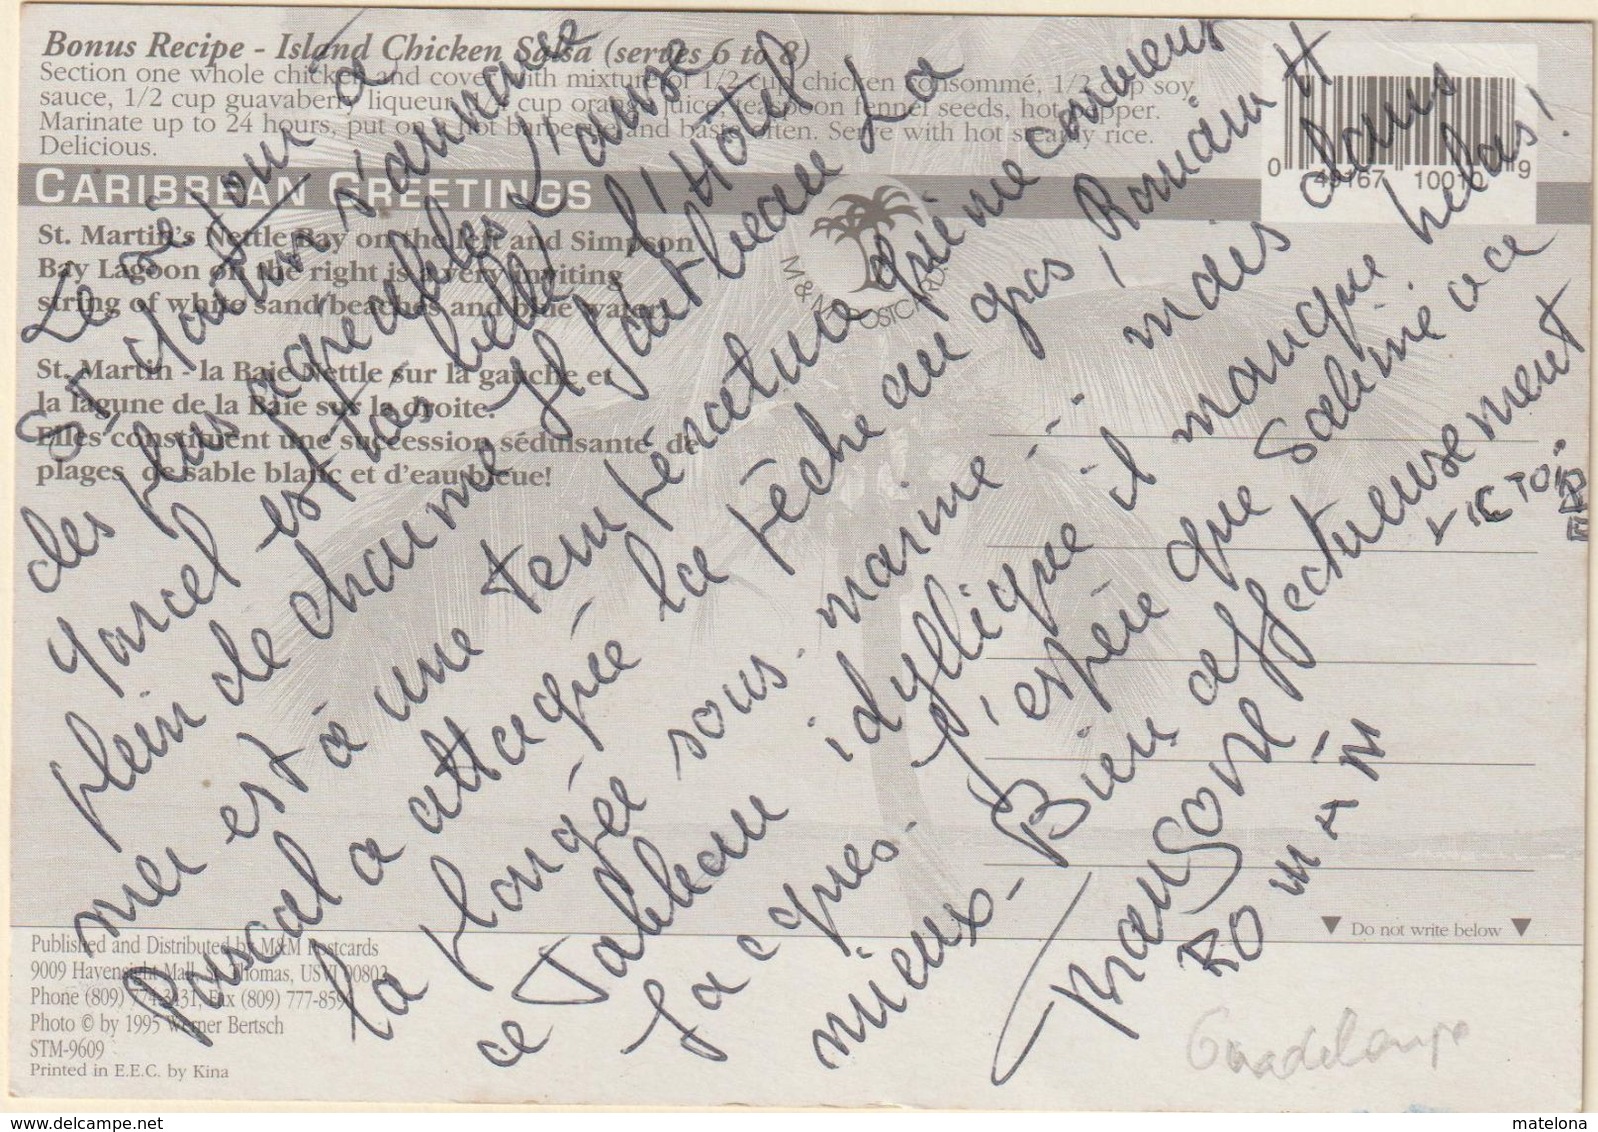 Bonus Recipe - Island Chicken Salsa (serves 6 to 8)
Section one whole chicken and cover with mixture of 1/2 cup chicken consommé, 1/2 cup soy
sauce, 1/2 cup guavaberry liqueur, 1/4 cup orange juice, teaspoon fennel seeds, hot pepper.
Marinate up to 24 hours, put on a hot barbecue and baste often. Serve with hot steamy rice.
Delicious.
CARIBBEAN GREETINGS
0 49167 10010 9
St. Martin's Nettle Bay on the left and Simpson
Bay Lagoon on the right is a very inviting
string of white sand beaches and blue water!
St. Martin - la Baie Nettle sur la gauche et
la lagune de la Baie sur la droite.
Elles constituent une succession séduisante de
plages de sable blanc et d'eau bleue!
M&M POSTCARDS
Le séjour à
St Martin s'annonce
des plus agréables L'anse
Marcel est très belle, l'Hôtel
plein de charme et fort beau La
mer est à une température qui me convient
Pascal a attaqué la pêche au gros, Romain
la plongée sous-marine... mais dans
ce Tableau idyllique il manque hélas!
Jacques. J'espère que Sabine a ce
mieux - Bien affectueusement
ROMAIN
VICTOIR
▼ Do not write below ▼
Published and Distributed by M&M Postcards
9009 Havensight Mall, St. Thomas, USVI 00802
Phone (809) 774-3431, Fax (809) 777-859
Photo © by 1995 Werner Bertsch
STM-9609
Printed in E.E.C. by Kina
Guadeloupe
www.delcampe.net
matelona